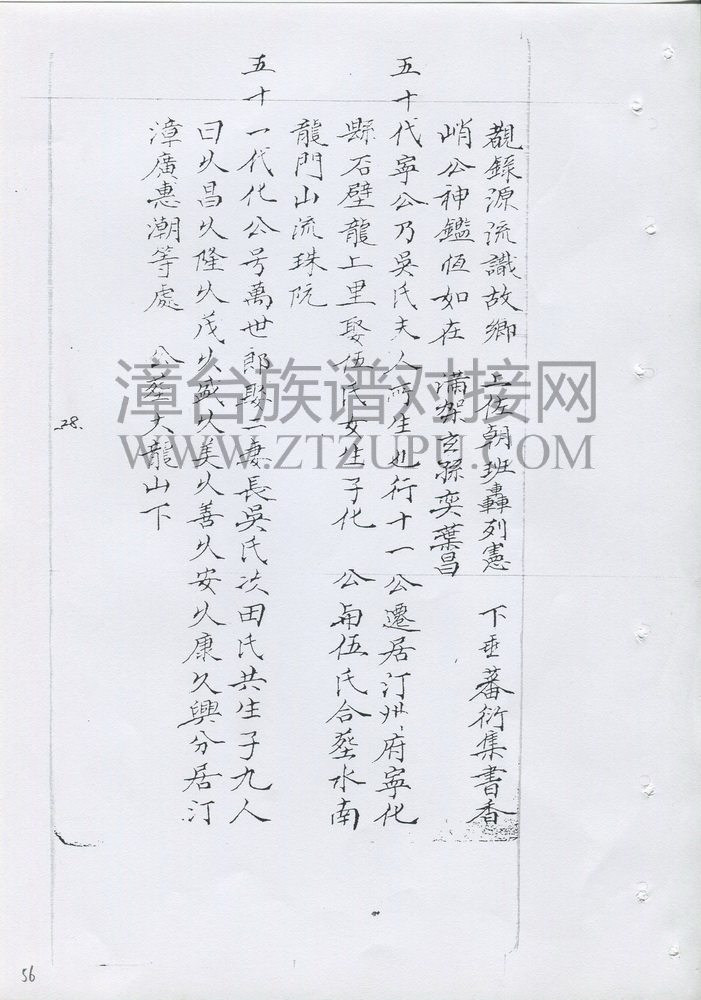 覩錄源流識故鄉 上佐朝班轟列憲 下垂蕃衍集書香
峭公神鑑恆如在 滿架玄孫奕葉昌
五十代寧公乃吳氏夫人所生也行十一公遷居汀州府寧化
縣石壁龍上里娶伍氏女生子化 公甫伍氏合葬水南
龍門山流珠阬
五十一代化公号萬世郎娶二妻長吳氏次田氏共生子九人
曰久昌久隆久茂久盛久美久善久安久康久興分居汀
漳廣惠潮等處 公葬大龍山下
28.
56
漳台族谱对接网
WWW.ZTZUPU.COM